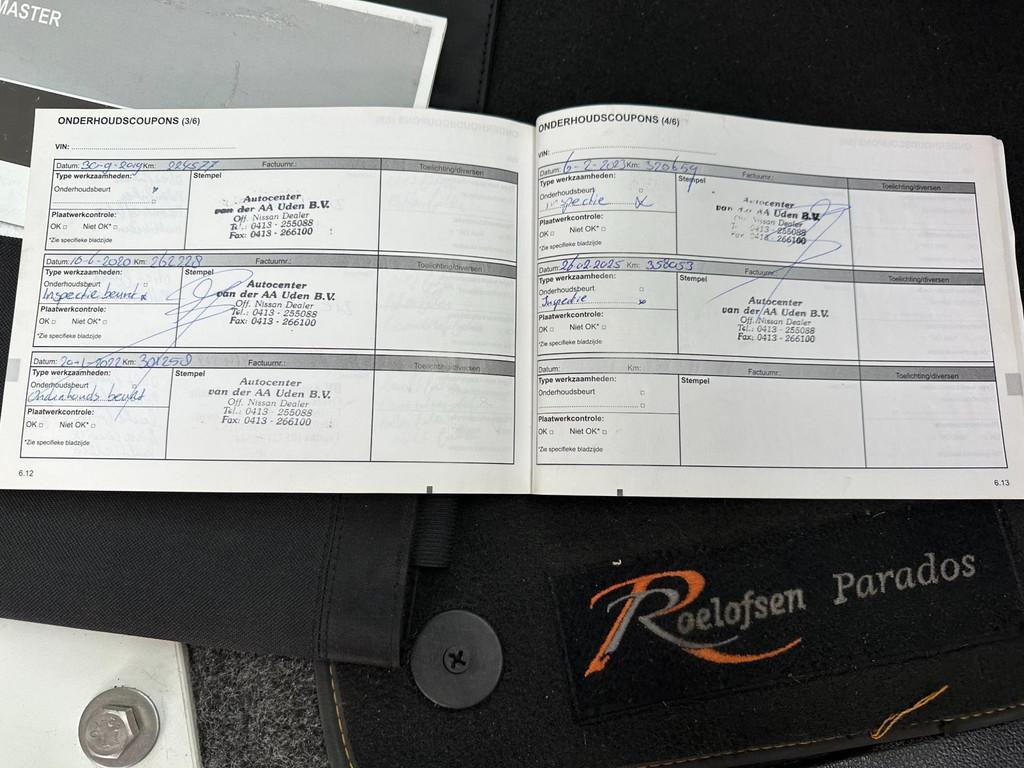 MASTER
ONDERHOUDSCOUPONS (3/6)
VIN:
Datum: 30-9-2019 Km: 224577 Factuurnr.: Toelichting/diversen
Type werkzaamheden: Stempel
Onderhoudsbeurt x
Autocenter
van der AA Uden B.V.
Off. Nissan Dealer
Tel.: 0413 - 255088
Fax: 0413 - 266100
Plaatwerkcontrole:
OK □ Niet OK* □
*Zie specifieke bladzijde
Datum: 10-6-2020 Km: 262228 Factuurnr.: Toelichting/diversen
Type werkzaamheden: Stempel
Onderhoudsbeurt □
Inspectie beurt x
Autocenter
van der AA Uden B.V.
Off. Nissan Dealer
Tel.: 0413 - 255088
Fax: 0413 - 266100
Plaatwerkcontrole:
OK □ Niet OK* □
*Zie specifieke bladzijde
Datum: 20-1-2022 Km: 301258 Factuurnr.: Toelichting/diversen
Type werkzaamheden: Stempel
Onderhoudsbeurt
Onderhouds beurt
Autocenter
van der AA Uden B.V.
Off. Nissan Dealer
Tel.: 0413 - 255088
Fax: 0413 - 266100
Plaatwerkcontrole:
OK □ Niet OK* □
*Zie specifieke bladzijde
6.12
ONDERHOUDSCOUPONS (4/6)
VIN:
Datum: Km: 320659 Factuurnr.: Toelichting/diversen
Type werkzaamheden: Stempel
Onderhoudsbeurt □
Inspectie x
Autocenter
van der AA Uden B.V.
Off. Nissan Dealer
Tel.: 0413 - 255088
Fax: 0413 - 266100
Plaatwerkcontrole:
OK □ Niet OK* □
*Zie specifieke bladzijde
Datum: 26-02-2025 Km: 358053 Factuurnr.: Toelichting/diversen
Type werkzaamheden: Stempel
Onderhoudsbeurt □
Inspectie x
Autocenter
van der AA Uden B.V.
Off. Nissan Dealer
Tel.: 0413 - 255088
Fax: 0413 - 266100
Plaatwerkcontrole:
OK □ Niet OK* □
*Zie specifieke bladzijde
Datum: Km: Factuurnr.: Toelichting/diversen
Type werkzaamheden: Stempel
Onderhoudsbeurt □
□
Plaatwerkcontrole:
OK □ Niet OK* □
*Zie specifieke bladzijde
6.13
Roelofsen Parados